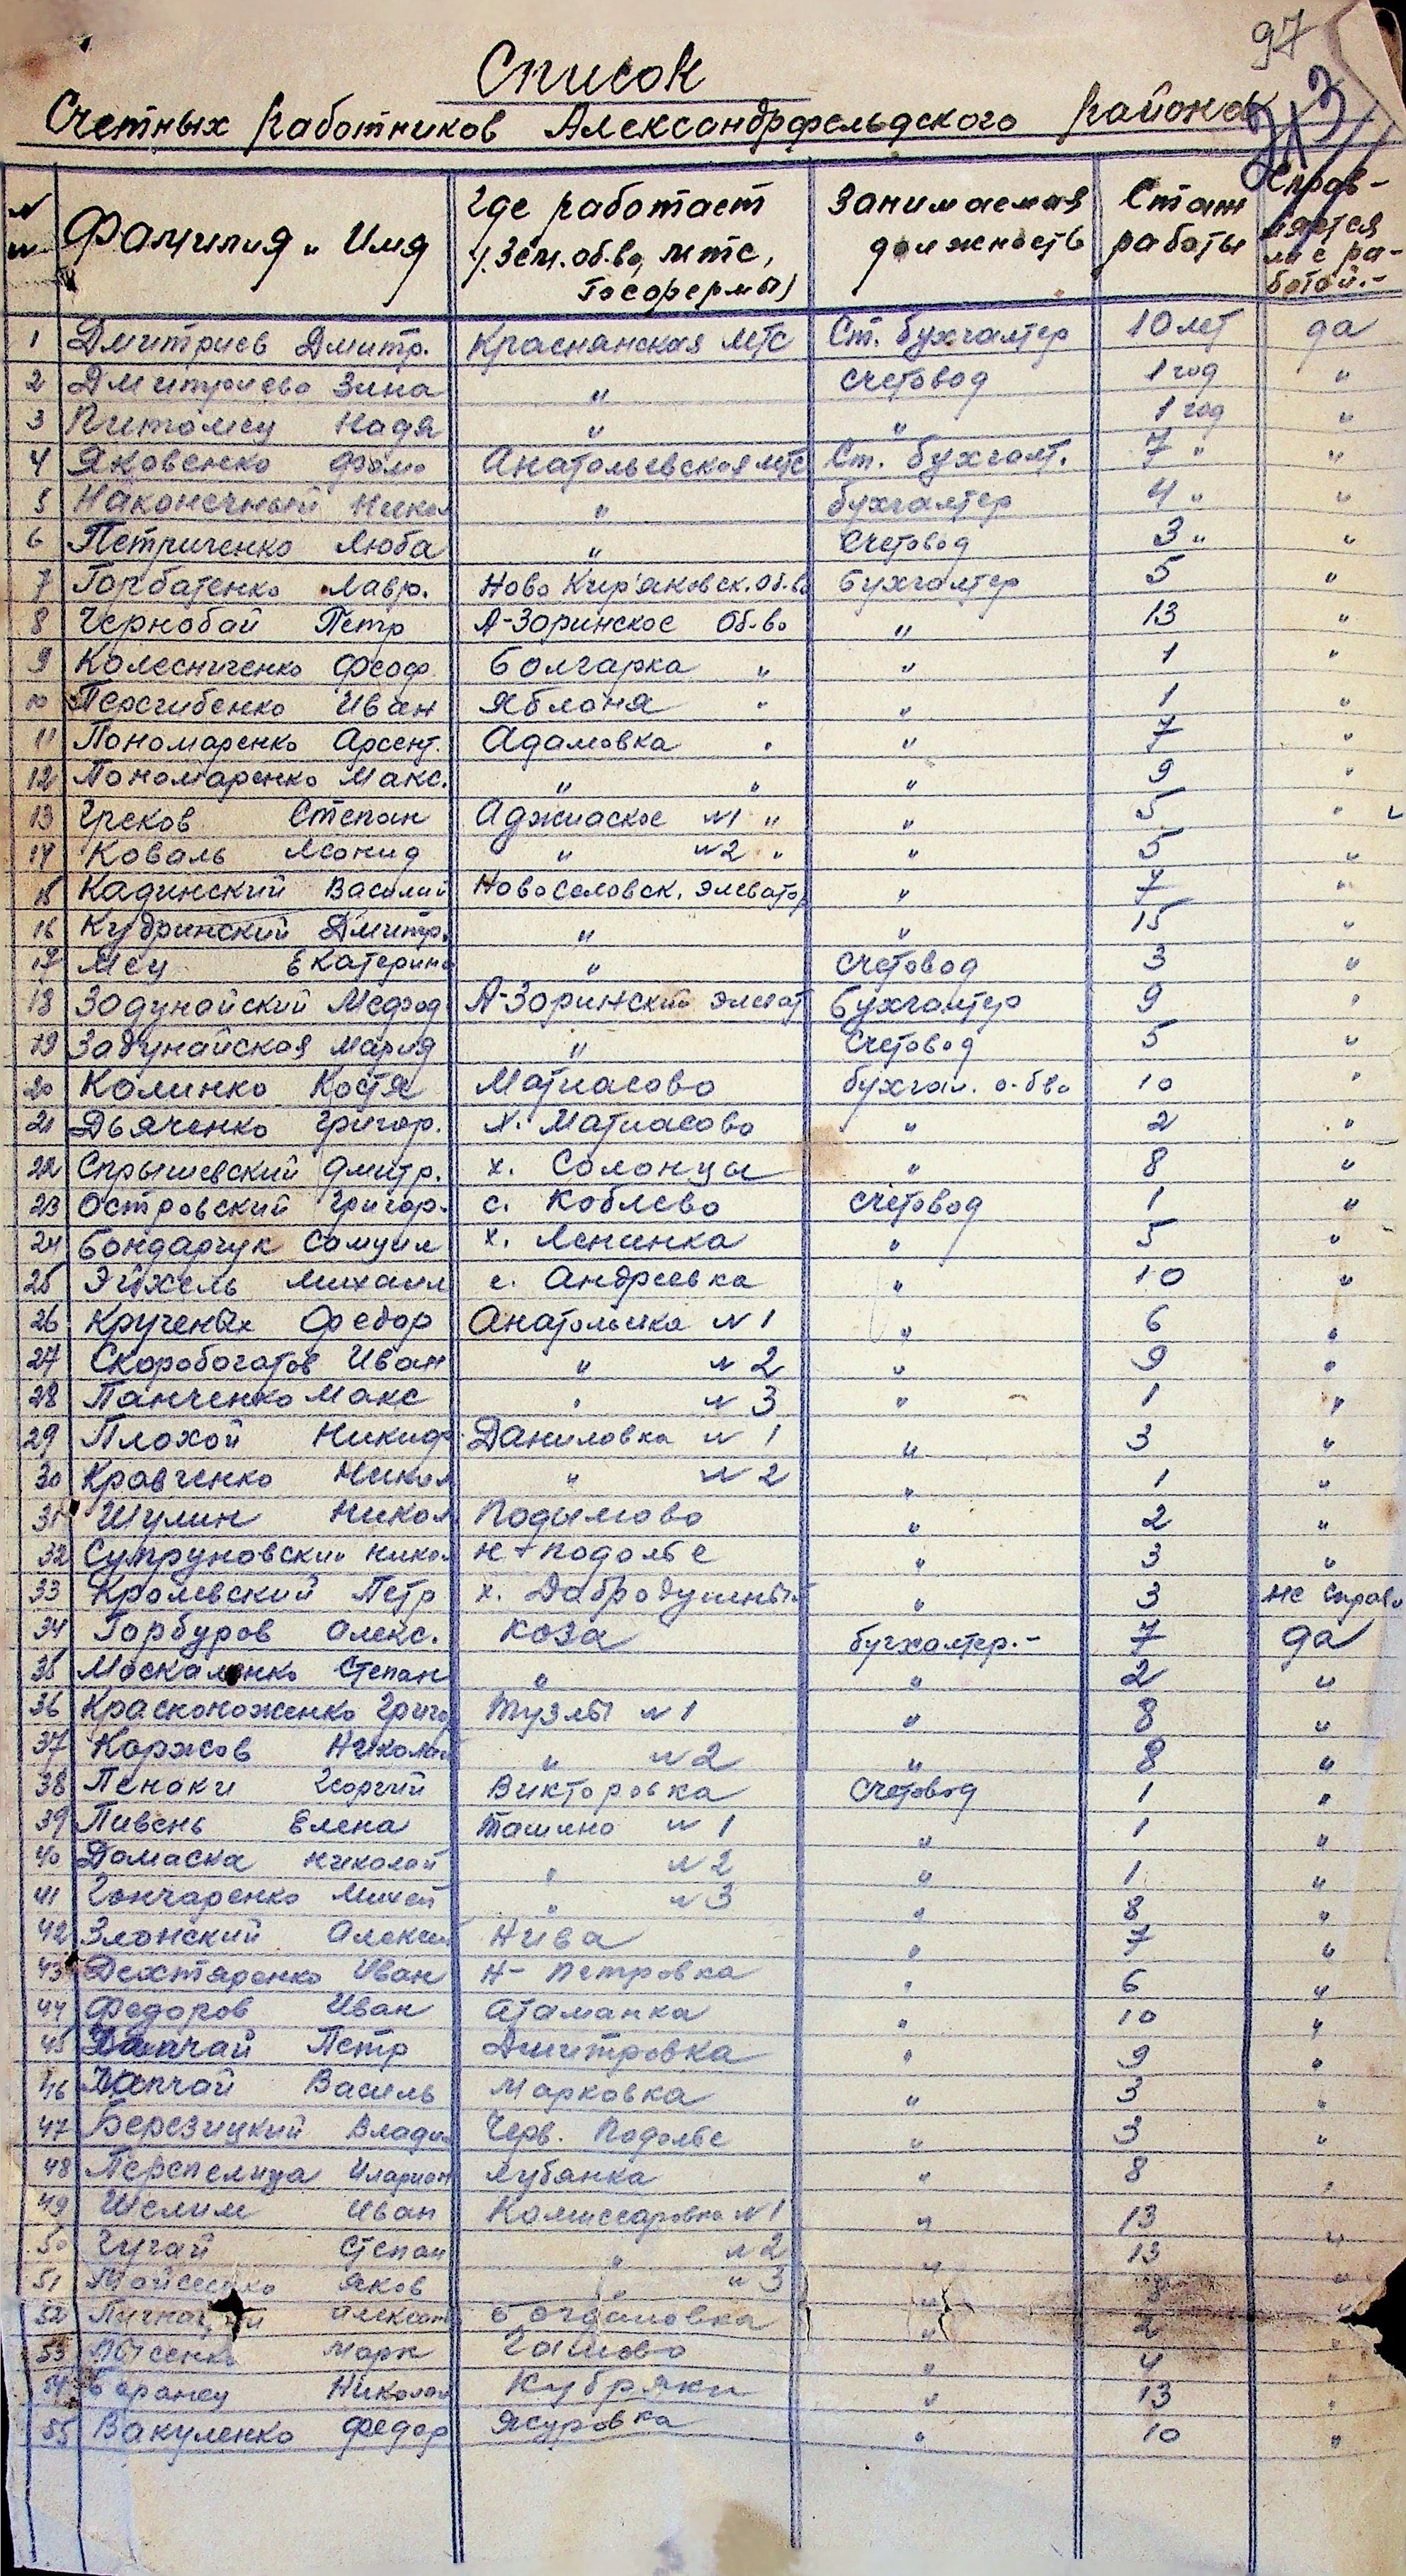 97
Список
Счетных работников Александрфельдского района
№ Фамилия и Имя Где работает (Зем. об-во, мтс, Госфермы) Занимаемая должность Стаж работы Справляется ли с работой.-
1 Дмитриев Дмитр. Краснянская МТС Ст. бухгалтер 10 лет да
2 Дмитриева Зина " счетовод 1 год "
3 Питомец Надя " " 1 год "
4 Яковенко Фома Анатольевская мтс Ст. бухгалт. 7 " "
5 Наконечный Никол " бухгалтер 4 " "
6 Петриченко Люба " Счетовод 3 " "
7 Горбатенко Лавр. Ново Кир'яковск. об-во бухгалтер 5 "
8 Чернобай Петр А-Зоринское Об-во " 13 "
9 Колесниченко Феоф. Болгарка " " 1 "
10 Пересибенко Иван Яблоня " " 1 "
11 Пономаренко Арсент. Адамовка " " 7 "
12 Пономаренко Макс. " " " 9 "
13 Греков Степан Аджиаское №1 " " 5 "
14 Коваль Леонид " №2 " " 5 "
15 Кадинский Василий Новоселовск. элеватор " 7 "
16 Кудринский Дмитр. " " 15 "
17 Меу Екатерина " счетовод 3 "
18 Задунайский Мефод А-Зоринский элеват бухгалтер 9 "
19 Задунайская Мария " Счетовод 5 "
20 Калинко Костя Матиасово бухгал. о-бва 10 "
21 Дьяченко Григор. х. Матиасово " 2 "
22 Спрышевский Дмитр. х. Солонцы " 8 "
23 Островский Григор. с. Коблево счетовод 1 "
24 Бондарчук Самуил х. Ленинка " 5 "
25 Эйхель Михаил с. Андреевка " 10 "
26 Крученых Федор Анатольевка №1 " 6 "
27 Скоробогатов Иван " №2 " 9 "
28 Панченко Макс " №3 " 1 "
29 Плохой Никиф. Даниловка №1 " 3 "
30 Кравченко Никол " №2 " 1 "
31 Шулин Никол Подимово " 2 "
32 Супруновский Никол н-подолье " 3 "
33 Кролевский Петр х. Добродушный " 3 не справл
34 Горбуров Алекс. Коза бугхалтер.- 7 да
35 Москаленко Степан " " 2 "
36 Красноноженко Григо Тузлы №1 " 8 "
37 Коржов Николай " №2 " 8 "
38 Пенаки Георгий Викторовка Счетовод 1 "
39 Пивень Елена Ташино №1 " 1 "
40 Домаска Николай " №2 " 1 "
41 Гончаренко Михей " №3 " 8 "
42 Злонский Алексей Нива " 7 "
43 Дехтяренко Иван Н-Петровка " 6 "
44 Федоров Иван Атаманка " 10 "
45 Чапчай Петр Дмитровка " 9 "
46 Чапчай Василь Марковка " 3 "
47 Березицкий Владим Черв. Подолье " 3 "
48 Перепелица Иларион Лубянка " 8 "
49 Шелим Иван Комиссаровка №1 " 13 "
50 Чугай Степан " №2 " 13 "
51 Яков " №3 " "
52 Александ Богдановка " 2 "
53 Марк Гашово " 4 "
54 Баранец Николай Кубряки " 13 "
55 Вакуленко Федор Ясуровка " 10 "